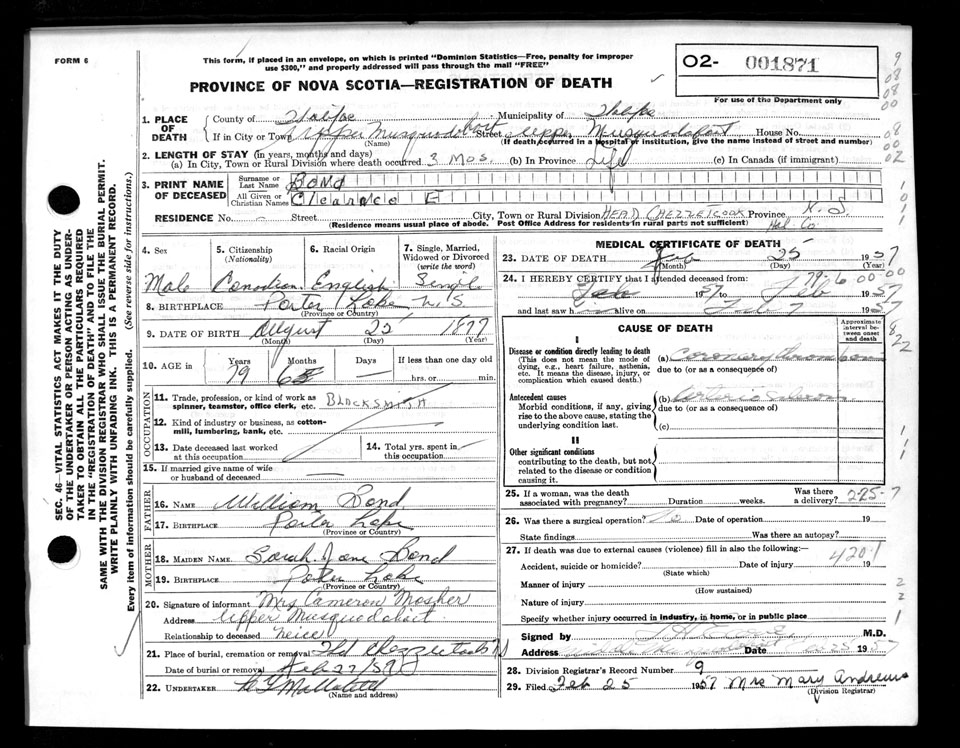 FORM 6
This form, if placed in an envelope, on which is printed "Dominion Statistics—Free, penalty for improper
use $300," and properly addressed will pass through the mail "FREE"
PROVINCE OF NOVA SCOTIA—REGISTRATION OF DEATH
O2- 001871
For use of the Department only
1. PLACE OF DEATH
County of Halifax Municipality of Halifax
If in City or Town Upper Musquodoboit Street Upper Musquodoboit House No.
(Name) (If death occurred in a hospital or institution, give the name instead of street and number)
2. LENGTH OF STAY (in years, months and days)
(a) In City, Town or Rural Division where death occurred 3 mos. (b) In Province Life (c) In Canada (if immigrant)
3. PRINT NAME OF DECEASED
Surname or Last Name Bond
All Given or Christian Names Clearnce E
RESIDENCE No. - Street City, Town or Rural Division HEAD CHEZZETCOOK Province N.S
(Residence means usual place of abode. Post Office Address for residents in rural parts not sufficient) Hal Co
4. Sex
Male
5. Citizenship
(Nationality)
Canadian
6. Racial Origin
English
7. Single, Married, Widowed or Divorced
(write the word)
Singl
8. BIRTHPLACE Porter Lake N.S
(Province or Country)
9. DATE OF BIRTH August 25 1877
(Month) (Day) (Year)
10. AGE in Years Months Days If less than one day old
79 6 — hrs. or min.
OCCUPATION
11. Trade, profession, or kind of work as spinner, teamster, office clerk, etc. BLACKSMITH
12. Kind of industry or business, as cotton-mill, lumbering, bank, etc.
13. Date deceased last worked at this occupation
14. Total yrs. spent in this occupation
15. If married give name of wife or husband of deceased
FATHER
16. NAME William Bond
17. BIRTHPLACE Porter Lake
(Province or Country)
MOTHER
18. MAIDEN NAME Sarah Jane Bond
19. BIRTHPLACE Porter Lake
(Province or Country)
20. Signature of informant Mrs Cameron Mosher
Address Upper Musquodoboit
Relationship to deceased neice
21. Place of burial, cremation or removal Hd Chezzetcook N S
Date of burial or removal Feb 27/57
22. UNDERTAKER
(Name and address)
MEDICAL CERTIFICATE OF DEATH
23. DATE OF DEATH Feb 25 1957
(Month) (Day) (Year)
24. I HEREBY CERTIFY that I attended deceased from: 79-6 00-00
Feb 1957 Feb 1957
and last saw h alive on Feb 1957
CAUSE OF DEATH
Approximate interval between onset and death
I
Disease or condition directly leading to death
(This does not mean the mode of dying, e.g., heart failure, asthenia, etc. It means the disease, injury, or complication which caused death.)
(a) Coronary thrombosis
due to (or as a consequence of)
Antecedent causes
Morbid conditions, if any, giving rise to the above cause, stating the underlying condition last.
(b)
due to (or as a consequence of)
(c)
II
Other significant conditions
contributing to the death, but not related to the disease or condition causing it.
25. If a woman, was the death associated with pregnancy? Duration weeks. Was there a delivery? 225-7
26. Was there a surgical operation? No Date of operation 19
State findings Was there an autopsy?
27. If death was due to external causes (violence) fill in also the following:—
420-1
Accident, suicide or homicide? Date of injury 19
(State which)
Manner of injury
(How sustained)
Nature of injury
Specify whether injury occurred in industry, in home, or in public place
Signed by M.D.
Address Date 1957
28. Division Registrar's Record Number 9
29. Filed Feb 25 1957 Mrs Mary Andrews
(Division Registrar)
SEC. 46—VITAL STATISTICS ACT MAKES IT THE DUTY
OF THE UNDERTAKER OR PERSON ACTING AS UNDER-
TAKER TO OBTAIN ALL THE PARTICULARS REQUIRED
IN THE "REGISTRATION OF DEATH" AND TO FILE THE
SAME WITH THE DIVISION REGISTRAR WHO SHALL ISSUE THE BURIAL PERMIT.
WRITE PLAINLY WITH UNFADING INK. THIS IS A PERMANENT RECORD.
Every item of information should be carefully supplied. (See reverse side for instructions.)